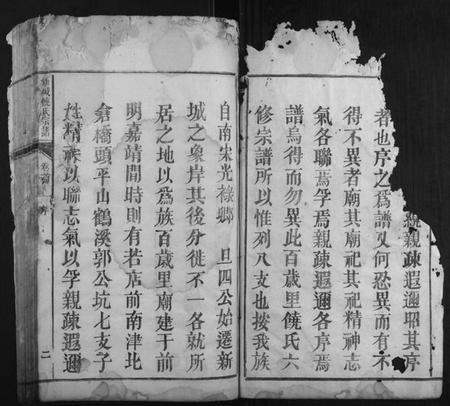 統親疎遐邇昭其序
者也序之爲譜又何恐異而有不
得不異者廟其廟祀其祀精神志
氣各聯焉孚焉親疎遐邇各序焉
譜烏得而勿異此百歲里饒氏六
修宗譜所以惟列八支也按我族
自南宋光祿卿 旦四公始遷新
城之象岸其後分徙不一各就所
居之地以爲族百歲里廟建于前
明嘉靖間時則有若店前南津北
倉橋頭平山鶴溪郭公坑七支子
姓精神以聯志氣以孚親疎遐邇
新城饒氏宗譜
序
二